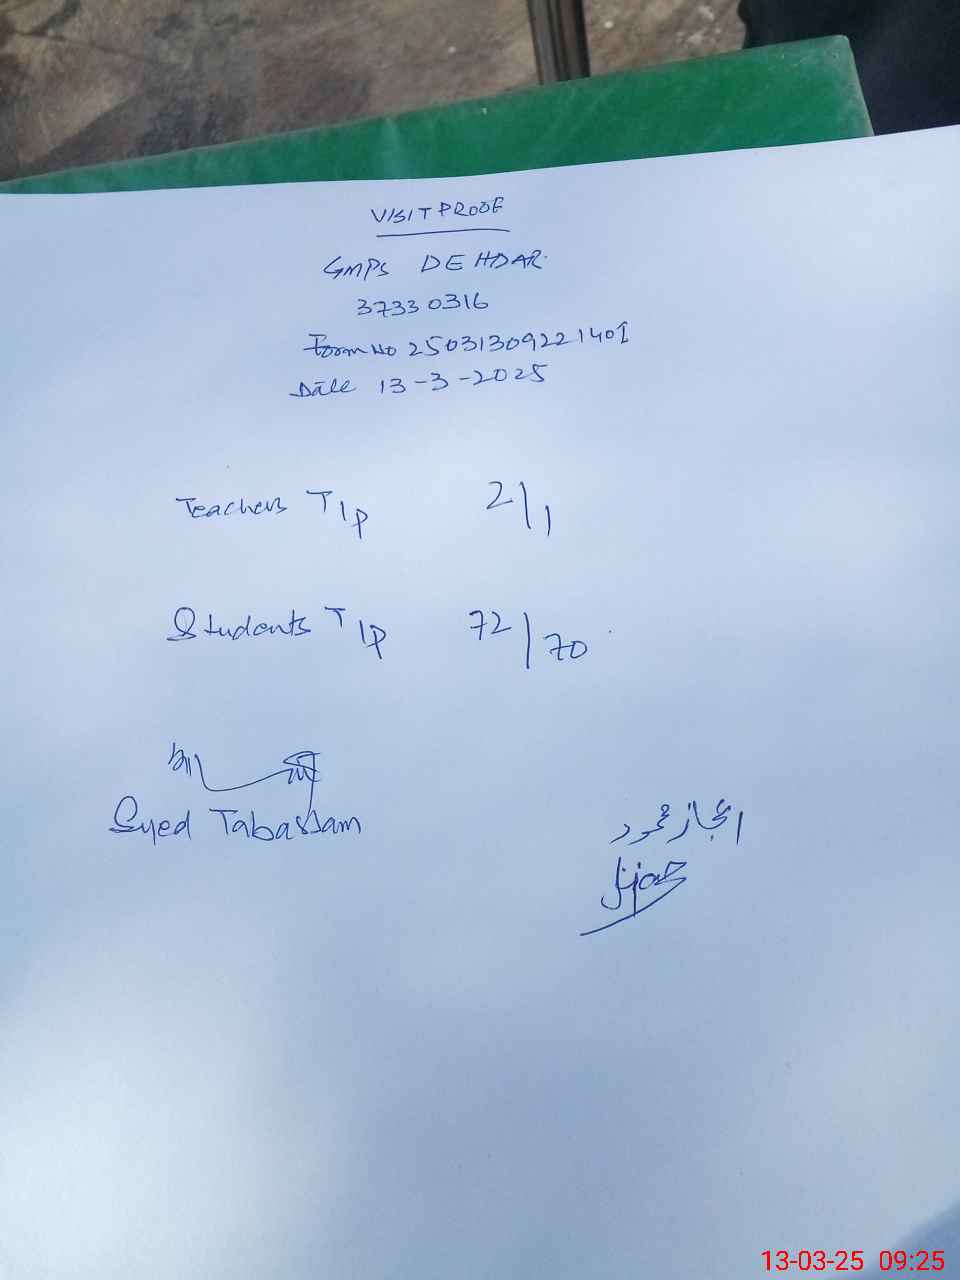 VISIT PROOF
GMPS DEHDAR.
37330316
Form No 25031309221401
Date 13-3-2025
Teachers T/P 2/1
Students T/P 72/70
Syed Tabassam
اعجاز محمود
13-03-25 09:25